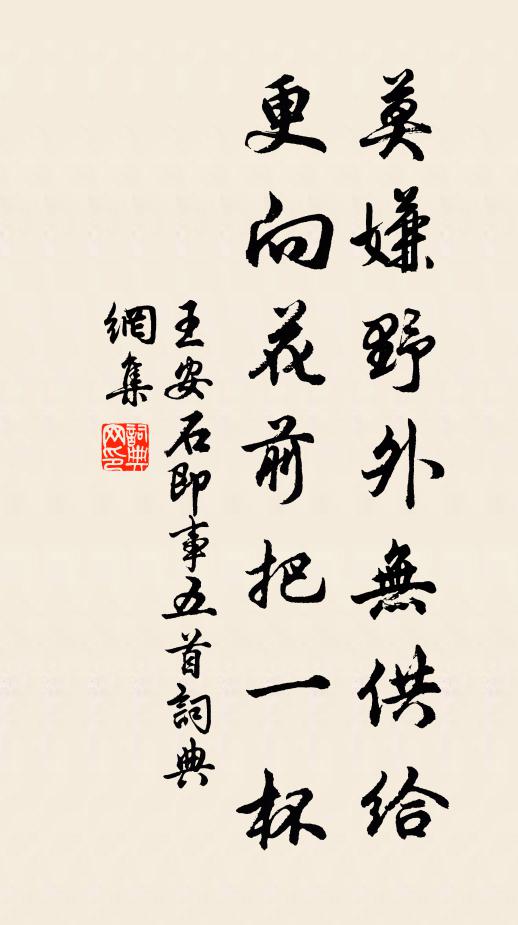 莫嫌野外無供給
更向花前把一杯
王安石即事五首詞典
網集
詞典網印